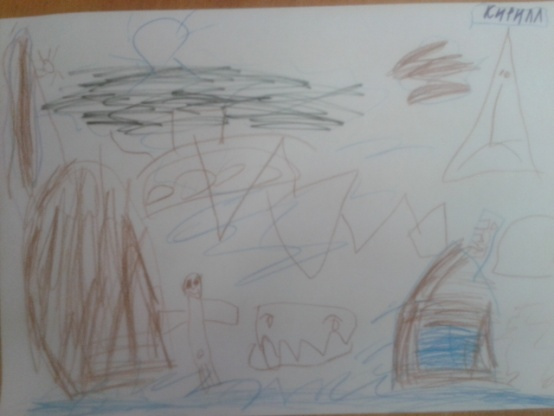 КИРИЛЛ